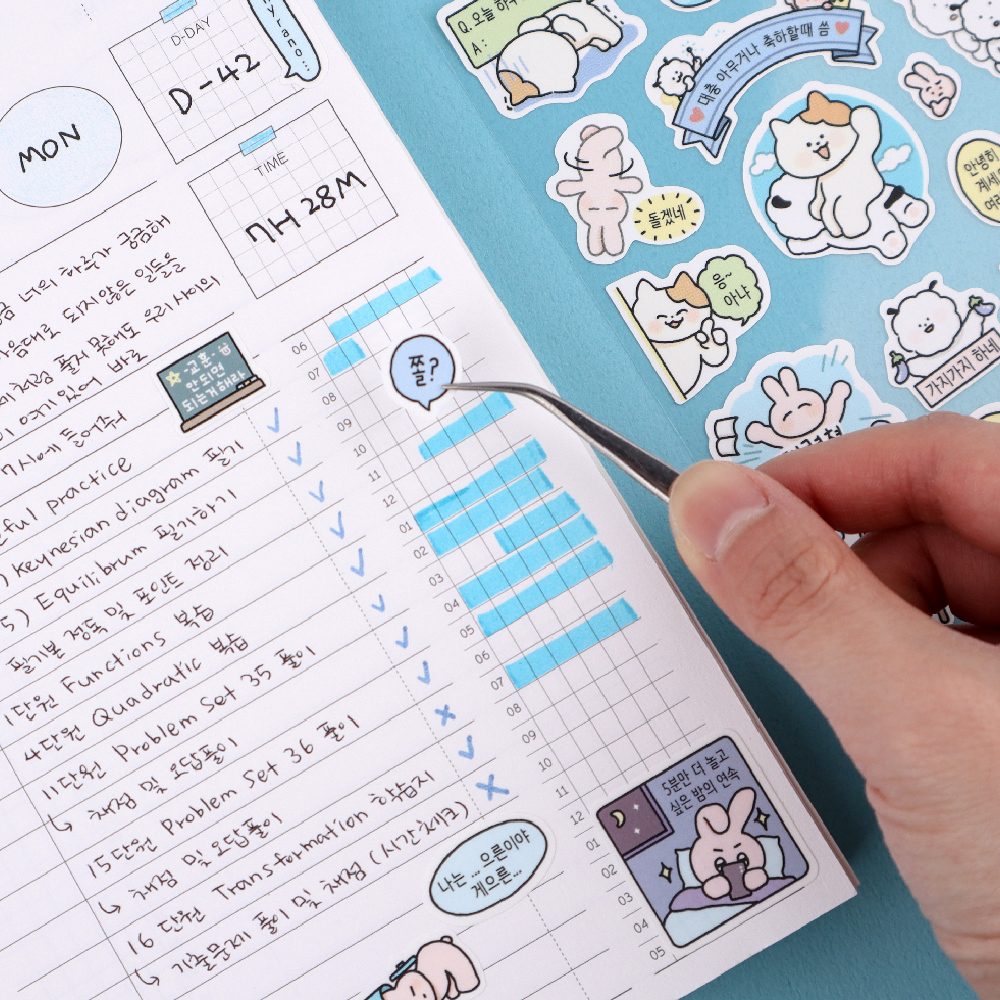 D-DAY
D-42
yrano...
MON
TIME
7H 28M
너의 하루가 궁금해
대로 되지 않은 일들을
풀지 못해도 우리 사이의
여기 있어 바로
7시에 들어줘
-교훈-
안되면
되는거해라
practice
Keynesian diagram 필기
5) Equilibrum 필기하기
필기본 정독 및 포인트 정리
1단원 Functions 복습
4단원 Quadratic 복습
11단원 Problem Set 35 풀이
↳ 채점 및 오답풀이
15단원 Problem Set 36 풀이
↳ 채점 및 오답풀이
16 단원 Transformation 학습지
↳ 기출문제 풀이 및 채점 (시간체크)
나는 ... 으른이야
게으른...
06
07
08
09
10
11
12
01
02
03
04
05
06
07
08
09
10
11
12
01
02
03
04
05
쫄?
5분만 더 놀고
싶은 밤의 연속
Q. 오늘 하루
A:
대충 아무거나 축하할때 씀
돌겠네
응~
아냐
안녕히
계세
여러
가지가지 하네